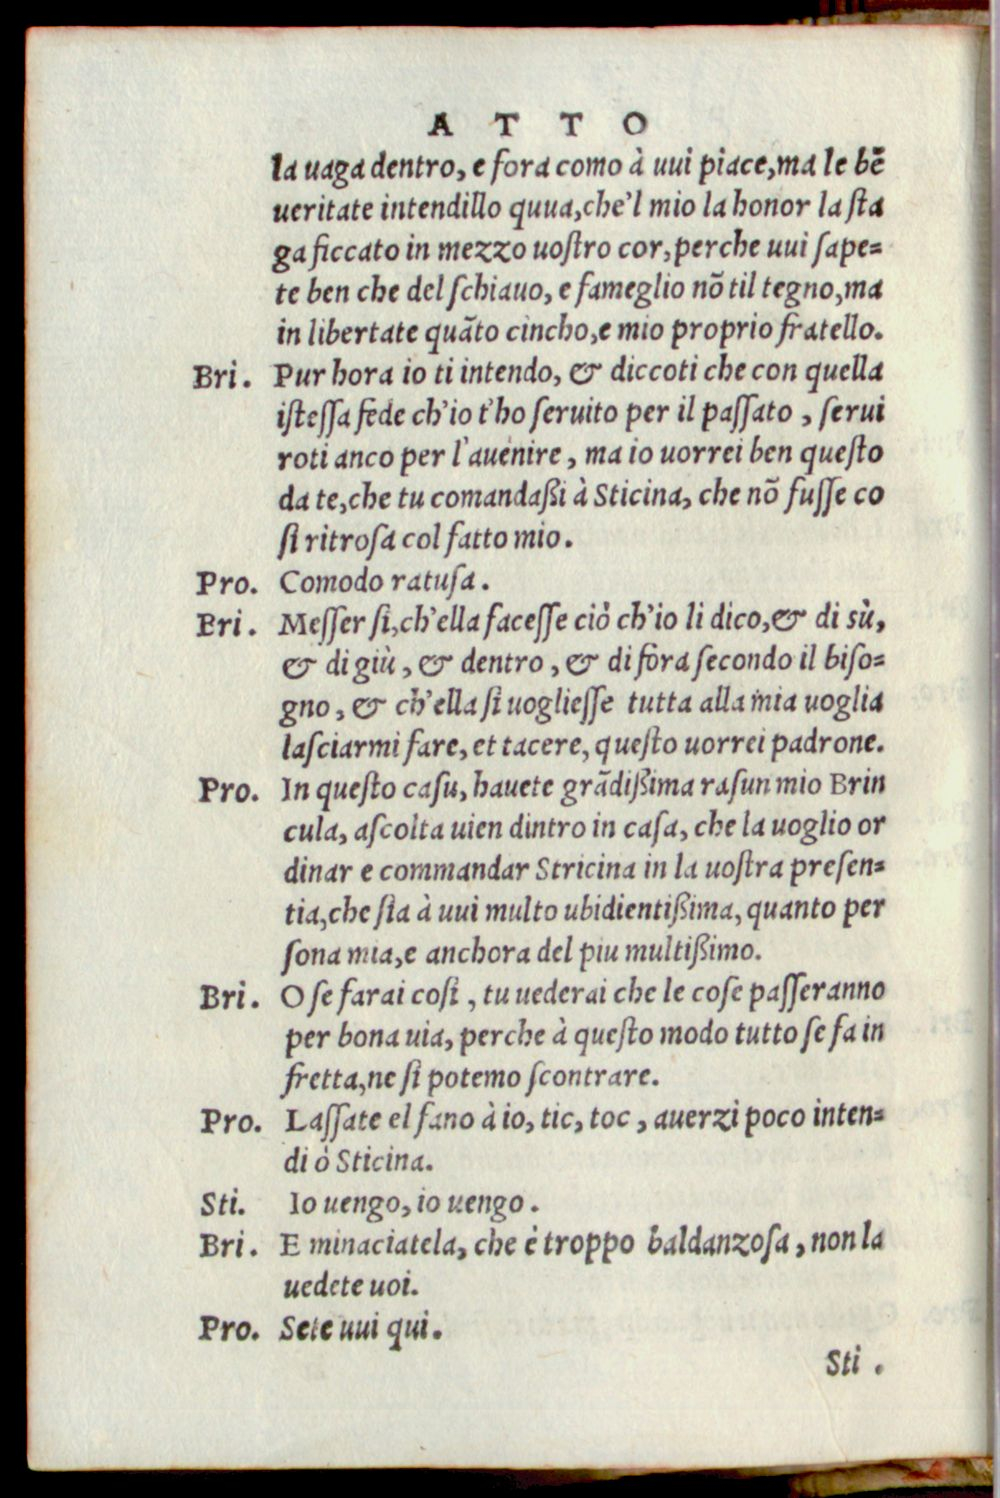 A T T O
la uaga dentro, e fora como à uui piace,ma le bẽ
ueritate intendillo quua,che'l mio la honor la ſta
ga ficcato in mezzo uoſtro cor,perche uui ſape=
te ben che del ſchiauo, e fameglio nõ til tegno,ma
in libertate quãto cincho,e mio proprio fratello.
Bri. Pur hora io ti intendo, & diccoti che con quella
iſteſſa fede ch'io t'ho ſeruito per il paſſato , ſerui
roti anco per l'auenire, ma io uorrei ben queſto
da te,che tu comandaßi à Sticina, che nõ fuſſe co
ſi ritroſa col fatto mio.
Pro. Comodo ratuſa.
Bri. Meſſer ſi,ch'ella faceſſe ciò ch'io li dico,& di sù,
& di giù , & dentro , & di fòra ſecondo il biſo=
gno , & ch'ella ſi uoglieſſe tutta alla mia uoglia
laſciarmi fare, et tacere, queſto uorrei padrone.
Pro. In queſto caſu, hauete grãdißima raſun mio Brin
cula, aſcolta uien dintro in caſa, che la uoglio or
dinar e commandar Stricina in la uoſtra preſen=
tia,che ſia à uui multo ubidientißima, quanto per
ſona mia,e anchora del piu multißimo.
Bri. O ſe farai coſi , tu uederai che le coſe paſſeranno
per bona uia, perche à queſto modo tutto ſe fa in
fretta,ne ſi potemo ſcontrare.
Pro. Laſſate el fano à io, tic, toc , auerzi poco inten=
di ò Sticina.
Sti. Io uengo, io uengo.
Bri. E minaciatela, che è troppo baldanzoſa, non la
uedete uoi.
Pro. Sete uui qui.
Sti .